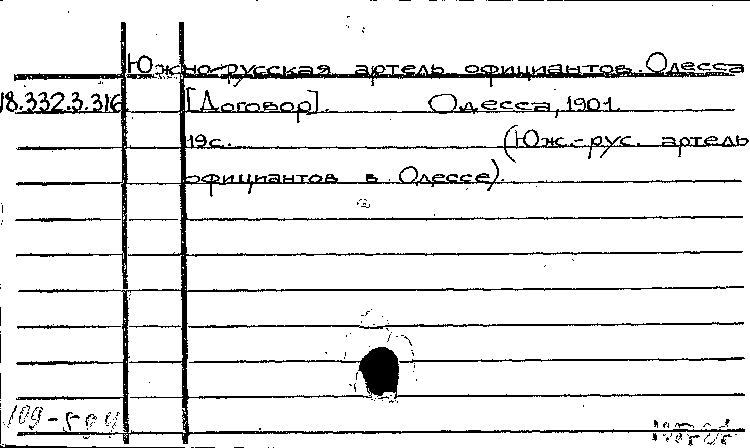 Южно-русская артель официантов. Одесса
18.332.3.316 [Договор]. Одесса, 1901.
19с. (Юж.-рус. артель
официантов в Одессе).